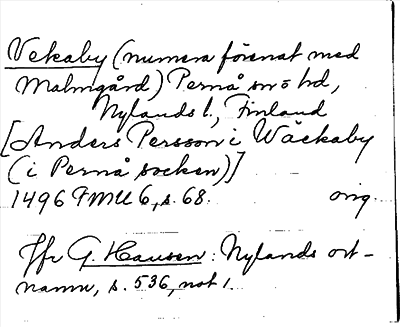 Vekaby (numera förenat med
Malmgård) Pernå sn o hd,
Nylands l., Finland
[Anders Persson i Wäckaby
(i Pernå socken)]
1496 FMU 6, s. 68. orig.
Jfr G. Hausen: Nylands ort-
namn, s. 536, not 1.